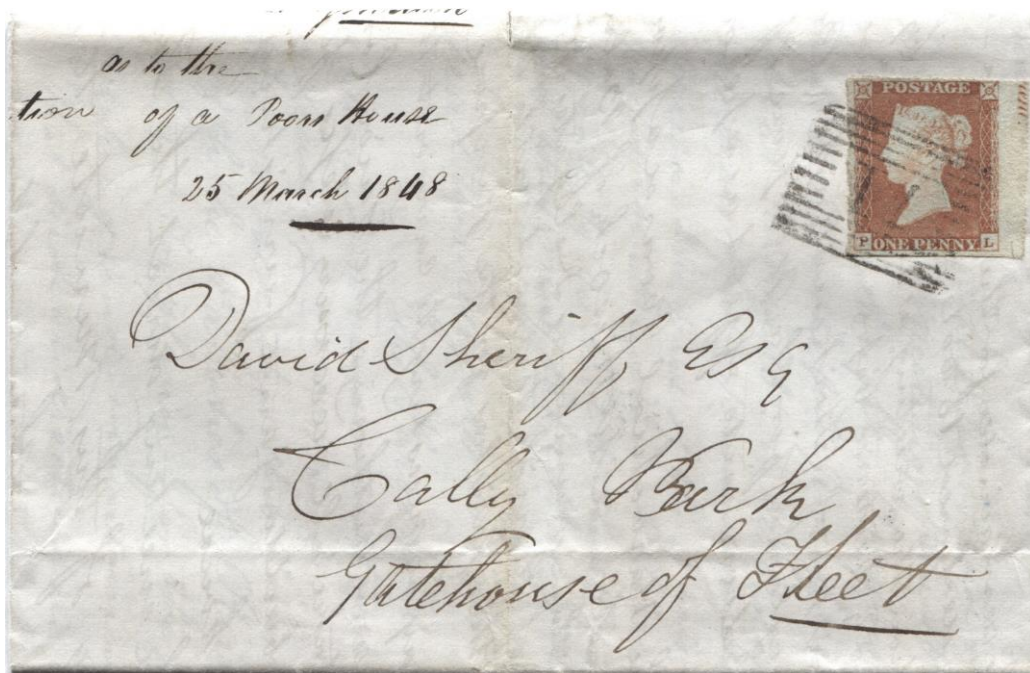 as to the
tion of a Poor House
25 March 1848
POSTAGE
P ONE PENNY L
David Sheriff Esq
Cally
Gatehouse of Fleet